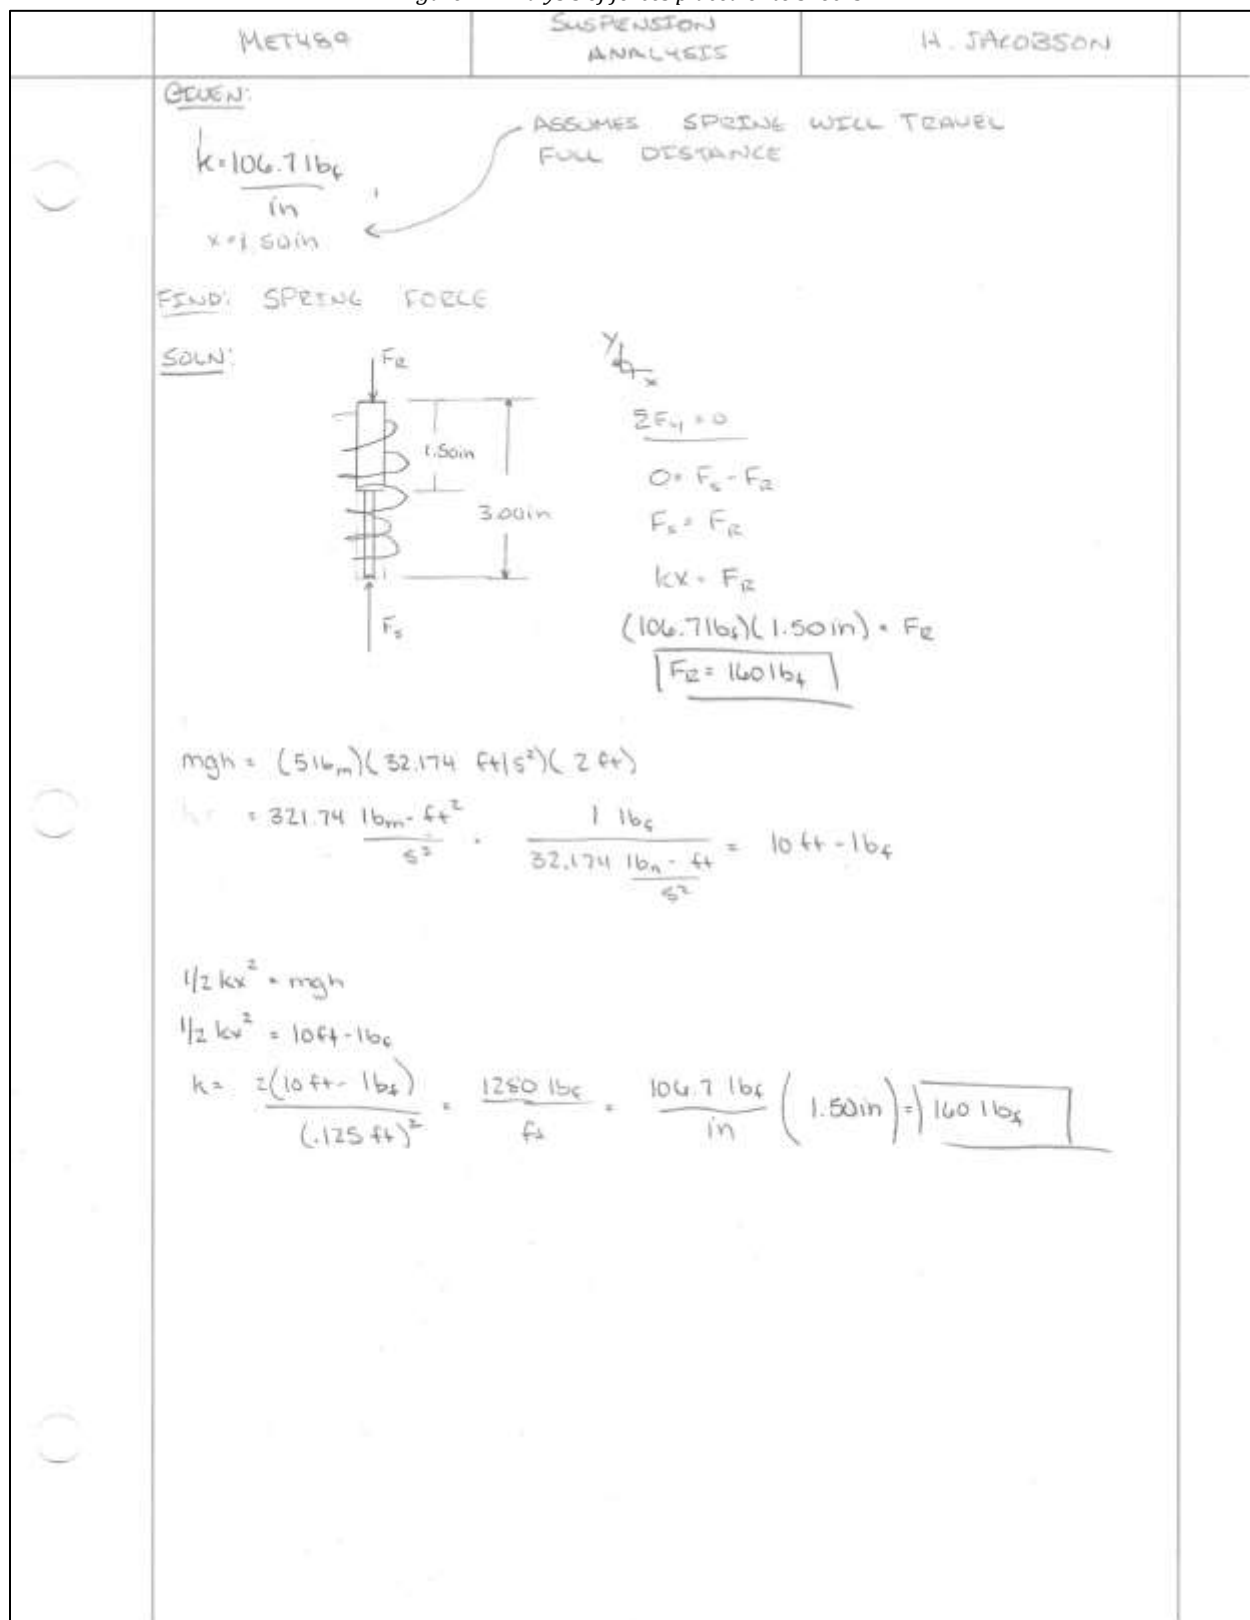 MET489
SUSPENSION
ANALYSIS
H. JACOBSON
GIVEN:
k=106.7 lbf
in
x=1.50in
ASSUMES SPRING WILL TRAVEL
FULL DISTANCE
FIND: SPRING FORCE
SOLN:
FR
1.50in
3.00in
Fs
y
x
ΣFy = 0
0 = Fs - FR
Fs = FR
kx = FR
(106.7lbf)(1.50in) = FR
FR = 160 lbf
mgh = (5lbm)(32.174 ft/s²)(2 ft)
= 321.74 lbm-ft²/s² · 1 lbf / 32.174 lbm-ft/s² = 10 ft-lbf
1/2 kx² = mgh
1/2 kx² = 10ft-lbf
k = 2(10 ft-lbf)/(.125 ft)² = 1280 lbf/ft = 106.7 lbf/in (1.50in) = 160 lbf